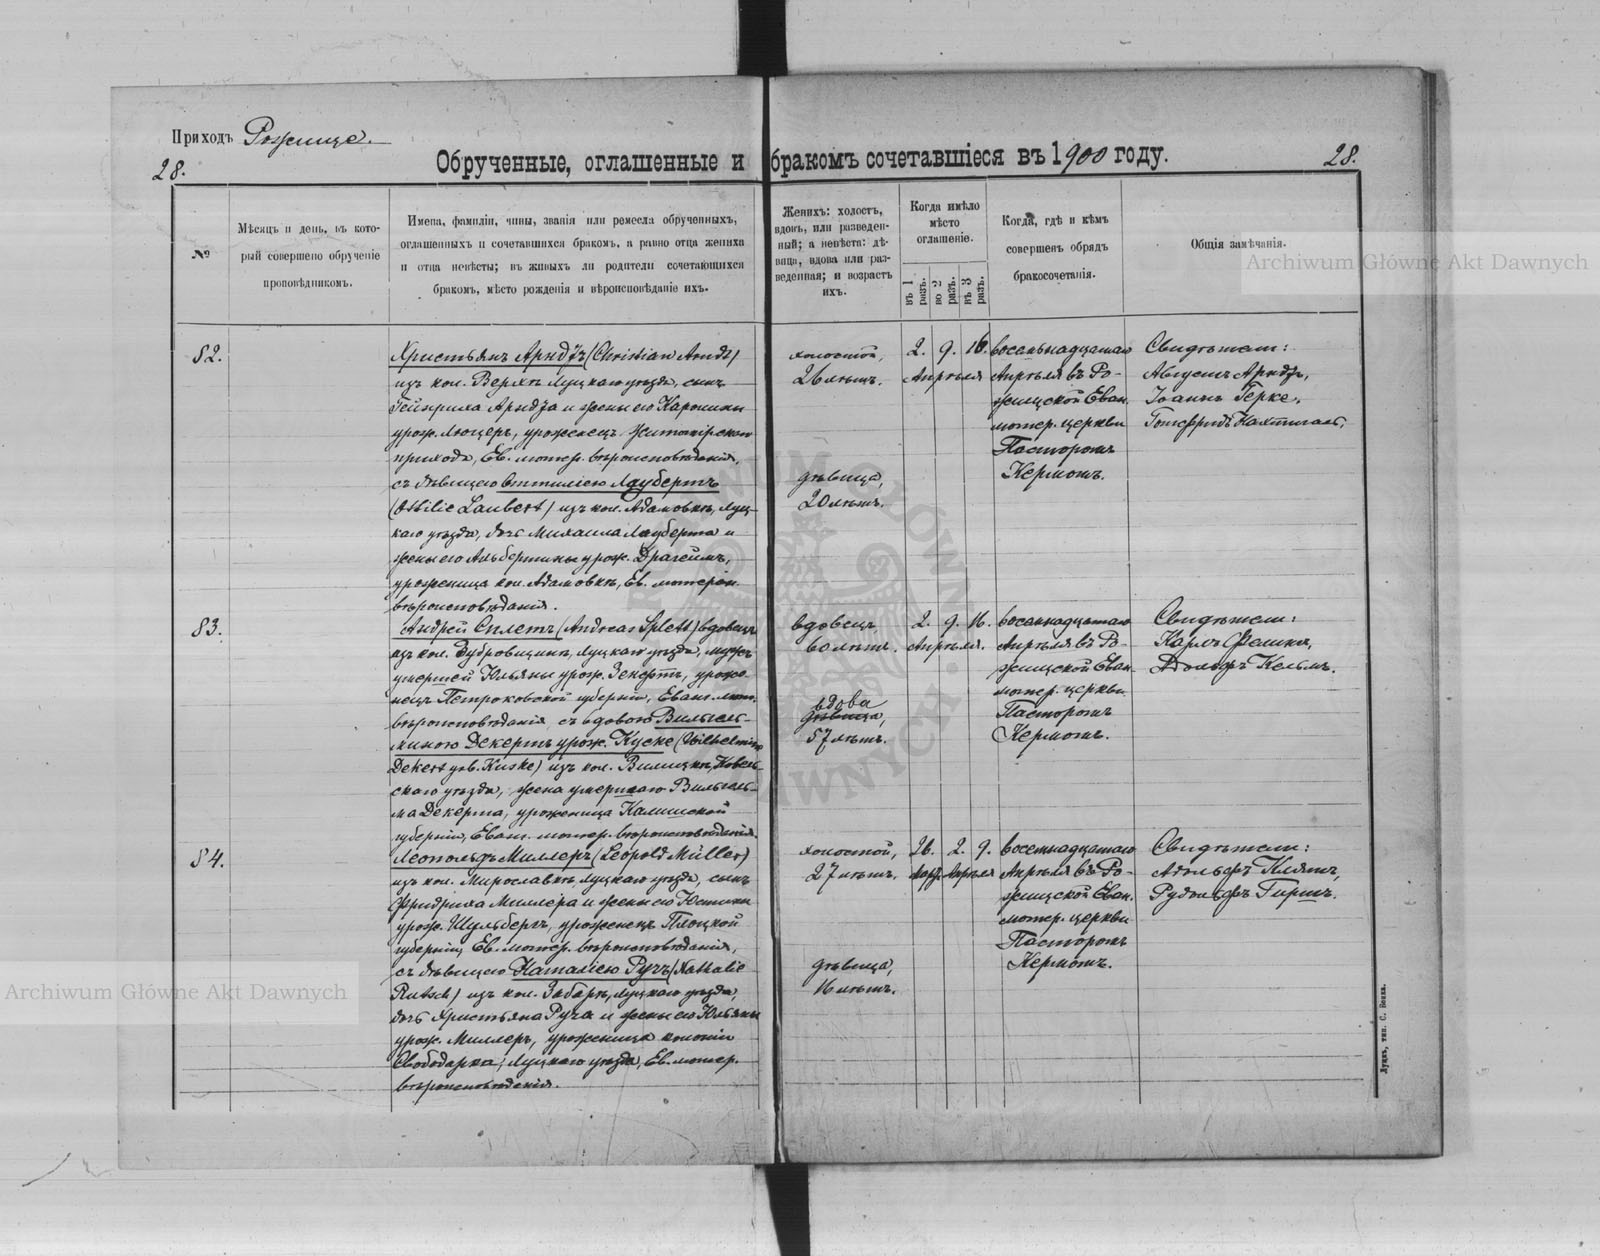 Приходъ Рожище.
28.
Обрученные, оглашенные и бракомъ сочетавшіеся въ 1900 году.
28.
№
Мѣсяцъ и день, въ кото-
рый совершено обрученіе
проповѣдникомъ.
Имена, фамиліи, чины, званія или ремесла обрученныхъ,
оглашенныхъ и сочетавшихся бракомъ, а равно отца жениха
и отца невѣсты; въ живыхъ ли родители сочетающихся
бракомъ, мѣсто рожденія и вѣроисповѣданіе ихъ.
Женихъ: холостъ,
вдовъ, или разведен-
ный; а невѣста: дѣ-
вица, вдова или раз-
веденная; и возрастъ
ихъ.
Когда имѣло
мѣсто
оглашеніе.
въ 1 разъ.
во 2 разъ.
въ 3 разъ.
Когда, гдѣ и кѣмъ
совершенъ обрядъ
бракосочетанія.
Общія замѣчанія.
Archiwum Główne Akt Dawnych
82.
Христьянъ Арндтъ (Christian Arndt)
изъ кол. Верхъ Луцкаго уѣзда, сынъ
Гейнриха Арндта и жены его Каролины
урож. Лющеръ, уроженецъ Житомірскаго
прихода, Ев. лютер. вѣроисповѣданія,
съ дѣвицею Оттиліею Лаубертъ
(Ottilie Laubert) изъ кол. Адамовкѣ, Луц-
каго уѣзда, дочь Михаила Лауберта и
жены его Альбертины урож. Драгеймъ,
уроженица кол. Адамовкѣ, Ев. лютеран.
вѣроисповѣданія.
холостой,
26 лѣтъ.
дѣвица,
20 лѣтъ.
2. 9. 16.
Апрѣля
восемнадцатаго
Апрѣля въ Ро-
жищской Еван.
лютер. церкви
Пасторомъ
Кермомъ.
Свидѣтели:
Августъ Арндтъ,
Іоаннъ Герке,
Готфридъ Нахтигаль.
83.
Андрей Сплетъ (Andreas Splett) вдовецъ
изъ кол. Дубровщинѣ, Луцкаго уѣзда, мужъ
умершей Юльяны урож. Зекертъ, уроже-
нецъ Петроковской губерніи, Еванг. лют.
вѣроисповѣданія съ вдовою Вильгель-
миною Декертъ урож. Куске (Wilhelmine
Dekert geb. Kuske) изъ кол. Вилицкѣ, Ковель-
скаго уѣзда, жена умершаго Вильгель-
ма Декерта, уроженица Калишской
губерніи, Еванг. лютер. вѣроисповѣданія.
вдовецъ
60 лѣтъ.
вдова
дѣвица,
57 лѣтъ.
2. 9. 16.
Апрѣля.
восемнадцатаго
Апрѣля въ Ро-
жищской Еван.
лютер. церкви
Пасторомъ
Кермомъ.
Свидѣтели:
Карлъ Фелики,
Адольфъ Кельмъ.
84.
Леопольдъ Миллеръ (Leopold Müller)
изъ кол. Мирославкѣ, Луцкаго уѣзда, сынъ
Фридриха Миллера и жены его Юстины
урож. Шульберъ, уроженецъ Плоцкой
губерніи, Ев. лютер. вѣроисповѣданія,
съ дѣвицею Наталіею Ручъ (Nathalie
Rutsch) изъ кол. Забара, Луцкаго уѣзда,
дочь Христьяна Руча и жены его Юльяны
урож. Миллеръ, уроженица колоніи
Свободарка, Луцкаго уѣзда, Ев. лютер.
вѣроисповѣданія.
холостой,
27 лѣтъ.
дѣвица,
16 лѣтъ.
26. 2. 9.
Март. Апрѣля
восемнадцатаго
Апрѣля въ Ро-
жищской Еван.
лютер. церкви
Пасторомъ
Кермомъ.
Свидѣтели:
Адольфъ Клятъ,
Рудольфъ Гиршъ.
Archiwum Główne Akt Dawnych
Луцкъ, тип. С. Бонка.